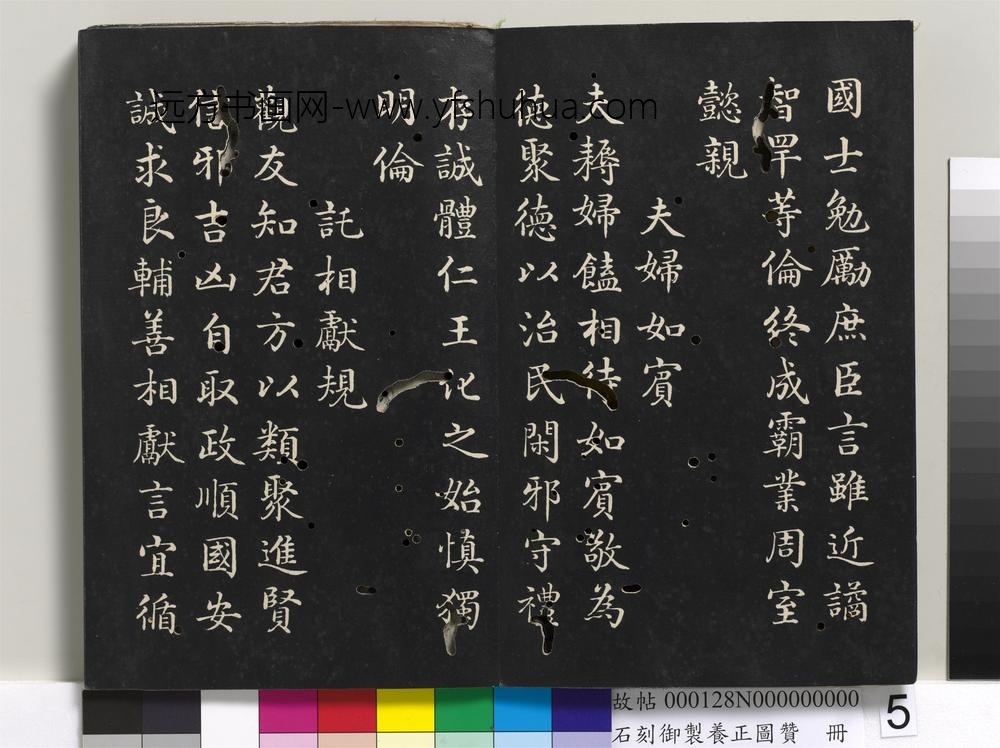 國士勉厲庶臣言雖近譎
智罕等倫終成霸業周室
懿親
夫婦如賓
夫耨婦饁相待如賓敬為
德聚德以治民閑邪守禮
存誠體仁王化之始慎獨
明倫
託相獻規
觀友知君方以類聚進賢
邪吉凶自取政順國安
誠求良輔善相獻言宜循
远方书画网-www.yfshuhua.com
故帖 000128N000000000
石刻御製養正圖贊 冊
5